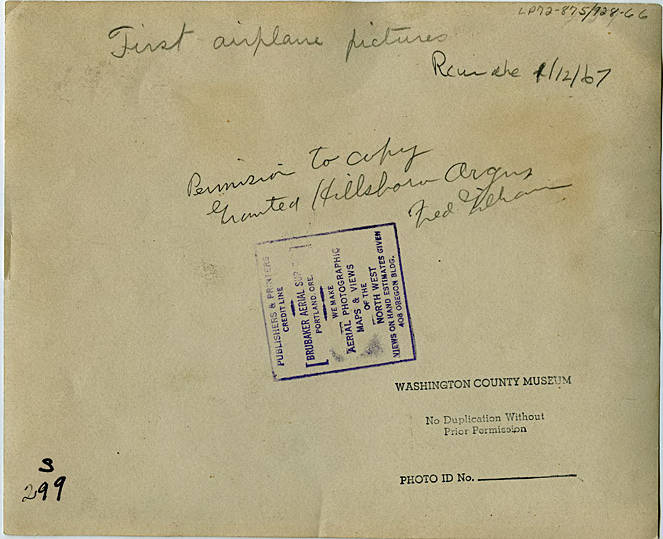 LP72-875/728-66
First airplane pictures
1/12/67
Permission to copy
Granted Hillsboro Argus
Fred
PUBLISHERS & PRINTERS
CREDIT LINE
BRUBAKER AERIAL
PORTLAND, ORE.
WE MAKE
AERIAL PHOTOGRAPHIC
MAPS & VIEWS
OF THE
NORTH WEST
VIEWS ON HAND ESTIMATES GIVEN
408 OREGON BLDG.
WASHINGTON COUNTY MUSEUM
No Duplication Without
Prior Permission
PHOTO ID No.
S
299